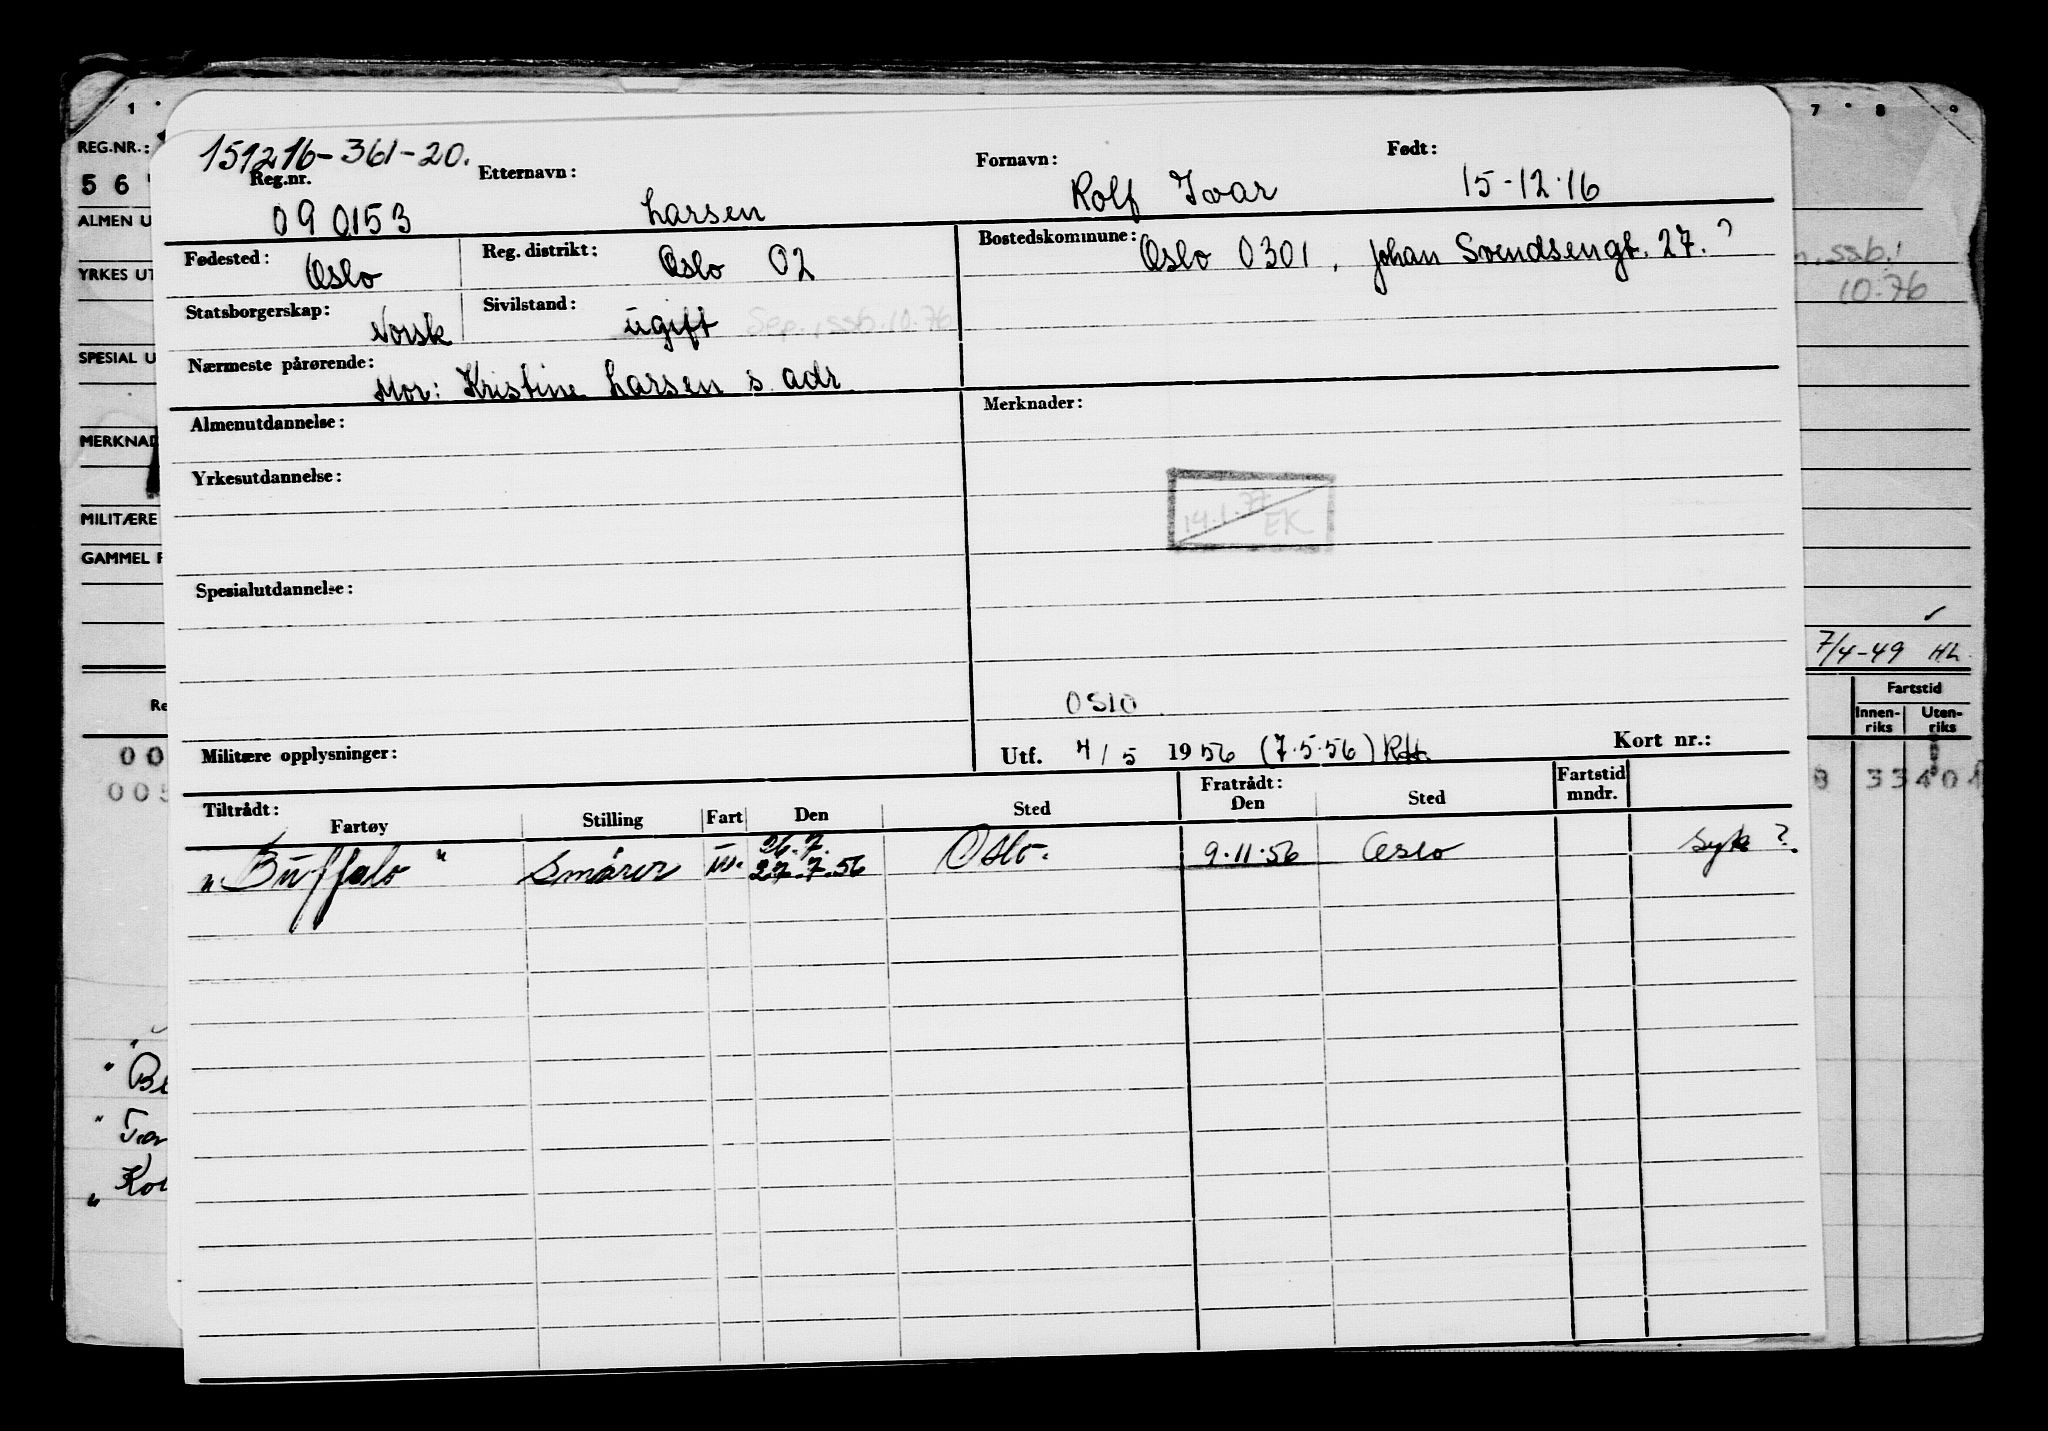 1 7 8 9
REG.NR.:
5 6
151216-361-20.
Reg.nr. Etternavn: Fornavn: Født:
090153 Larsen Rolf Ivar 15-12-16
ALMEN U
Fødested: Oslo Reg. distrikt: Oslo 02 Bostedskommune: Oslo 0301, Johan Svendsengt. 27.?
YRKES UT
ssb.
10.76
Statsborgerskap: Norsk Sivilstand: ugift Sep., ssb. 10.76
SPESIAL U
Nærmeste pårørende: Mor: Kristine Larsen s. adr
Almenutdannelse: Merknader:
MERKNAD
Yrkesutdannelse:
14.1.77 EK
MILITÆRE
GAMMEL F
Spesialutdannelse:
7/4-49 HL
Oslo
Re Fartstid
Innen-riks Uten-riks
Militære opplysninger: Utf. 4/5 1956 (7.5.56) Kort nr.:
00
005 8 33401
Tiltrådt: Fratrådt: Fartstid mndr.
Fartøy Stilling Fart Den Sted Den Sted
26.7.
"Buffalo" Smører 27.7.56 Oslo. 9.11.56 Oslo Syk?
" Be
" Tar
" Kon